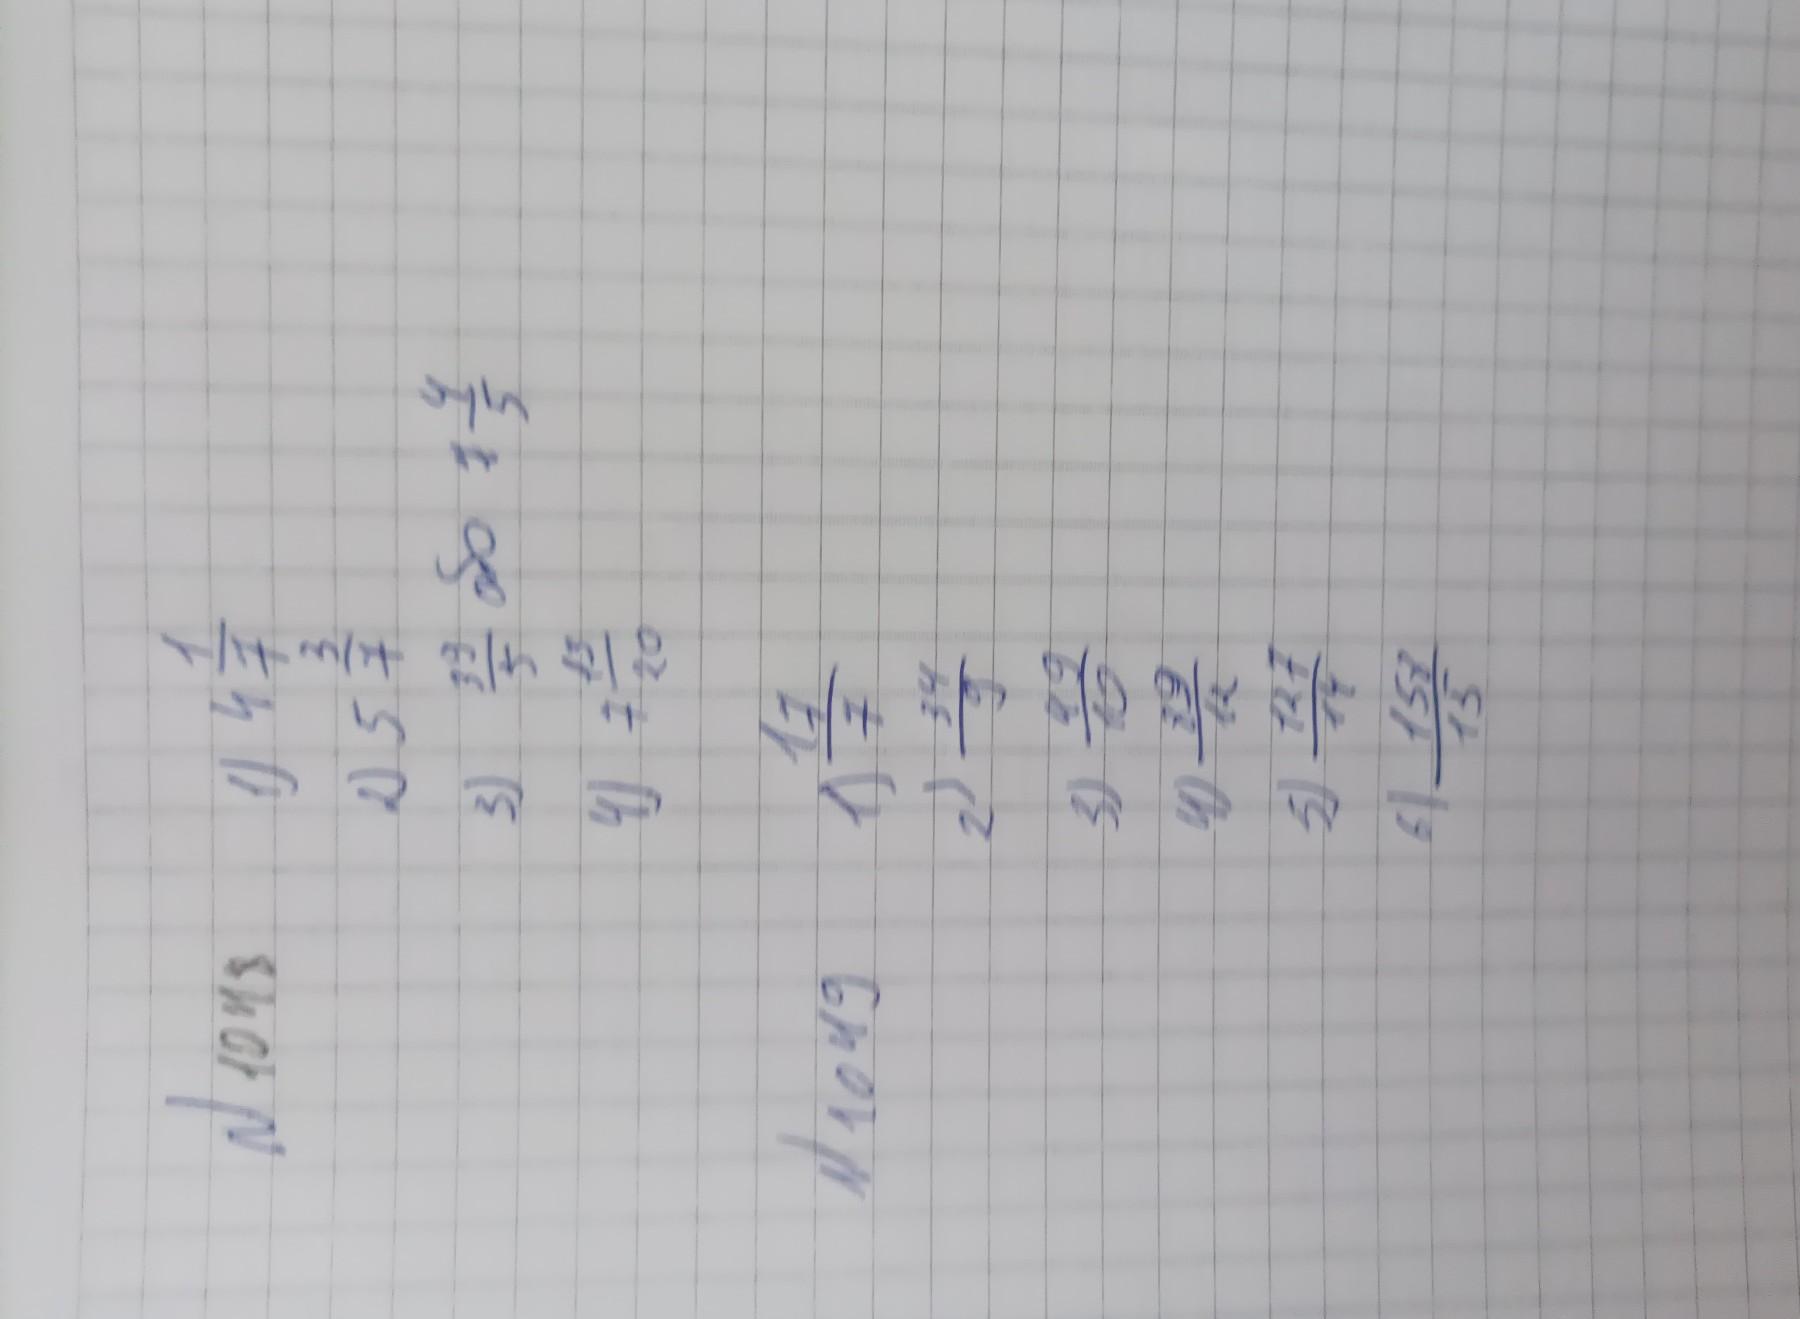 N 1048
1) 4 1/7
2) 5 3/7
3) 39/5 або 7 4/5
4) 7 13/20
N 1049
1) 17/7
2) 34/9
3) 49/10
4) 29/12
5) 127/14
6) 158/15